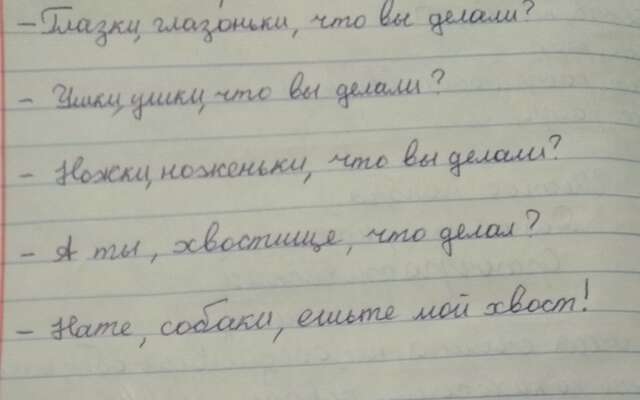 - Глазки, глазоньки, что вы делали?
- Ушки, ушки, что вы делали?
- Ножки, ноженьки, что вы делали?
- А ты, хвостище, что делал?
- Нате, собаки, ешьте мой хвост!